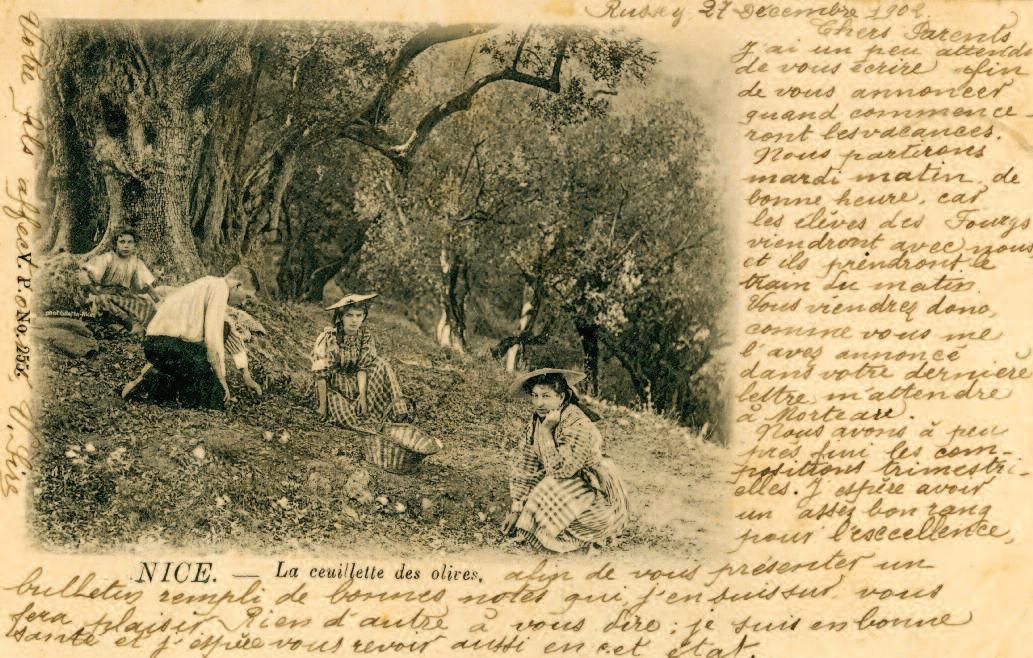 Russey 27 Décembre 1902
Chers Parents
J'ai un peu attendu
de vous écrire afin
de vous annoncer
quand commence
ront les vacances.
Nous partirons
mardi matin, de
bonne heure, car
les élèves des Fourgs
viendront avec nous
et ils prendront le
train du matin.
Vous viendrez donc,
comme vous me
l'avez annoncé
dans votre dernière
lettre m'attendre
à Morteau.
Nous avons à peu
près fini les com-
positions trimestri-
elles. J'espère avoir
un assez bon rang
pour l'excellence,
afin de vous présenter un
bulletin rempli de bonnes notes qui j'en suis sur vous
fera plaisir. Rien d'autre à vous dire; je suis en bonne
santé et j'espère vous revoir aussi en cet état.
Votre fils affec
V. P. No. 255
phot Giletta-Nice
NICE. — La ceuillette des olives.